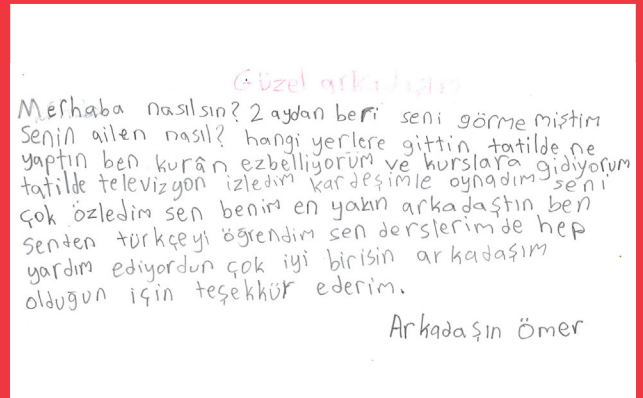 Güzel arkadaşım
Merhaba nasılsın? 2 aydan beri seni görme miştim
Senin ailen nasıl? hangi yerlere gittin tatilde ne
yaptın ben kurân ezbelliyorum ve kurslara gidiyorum
tatilde televizyon izledim kardeşimle oynadım seni
çok özledim sen benim en yakın arkadaştın ben
senden türkçeyi öğrendim sen derslerim de hep
yardım ediyordun çok iyi birisin arkadaşım
olduğun için teşekkür ederim.
Arkadaşın Ömer